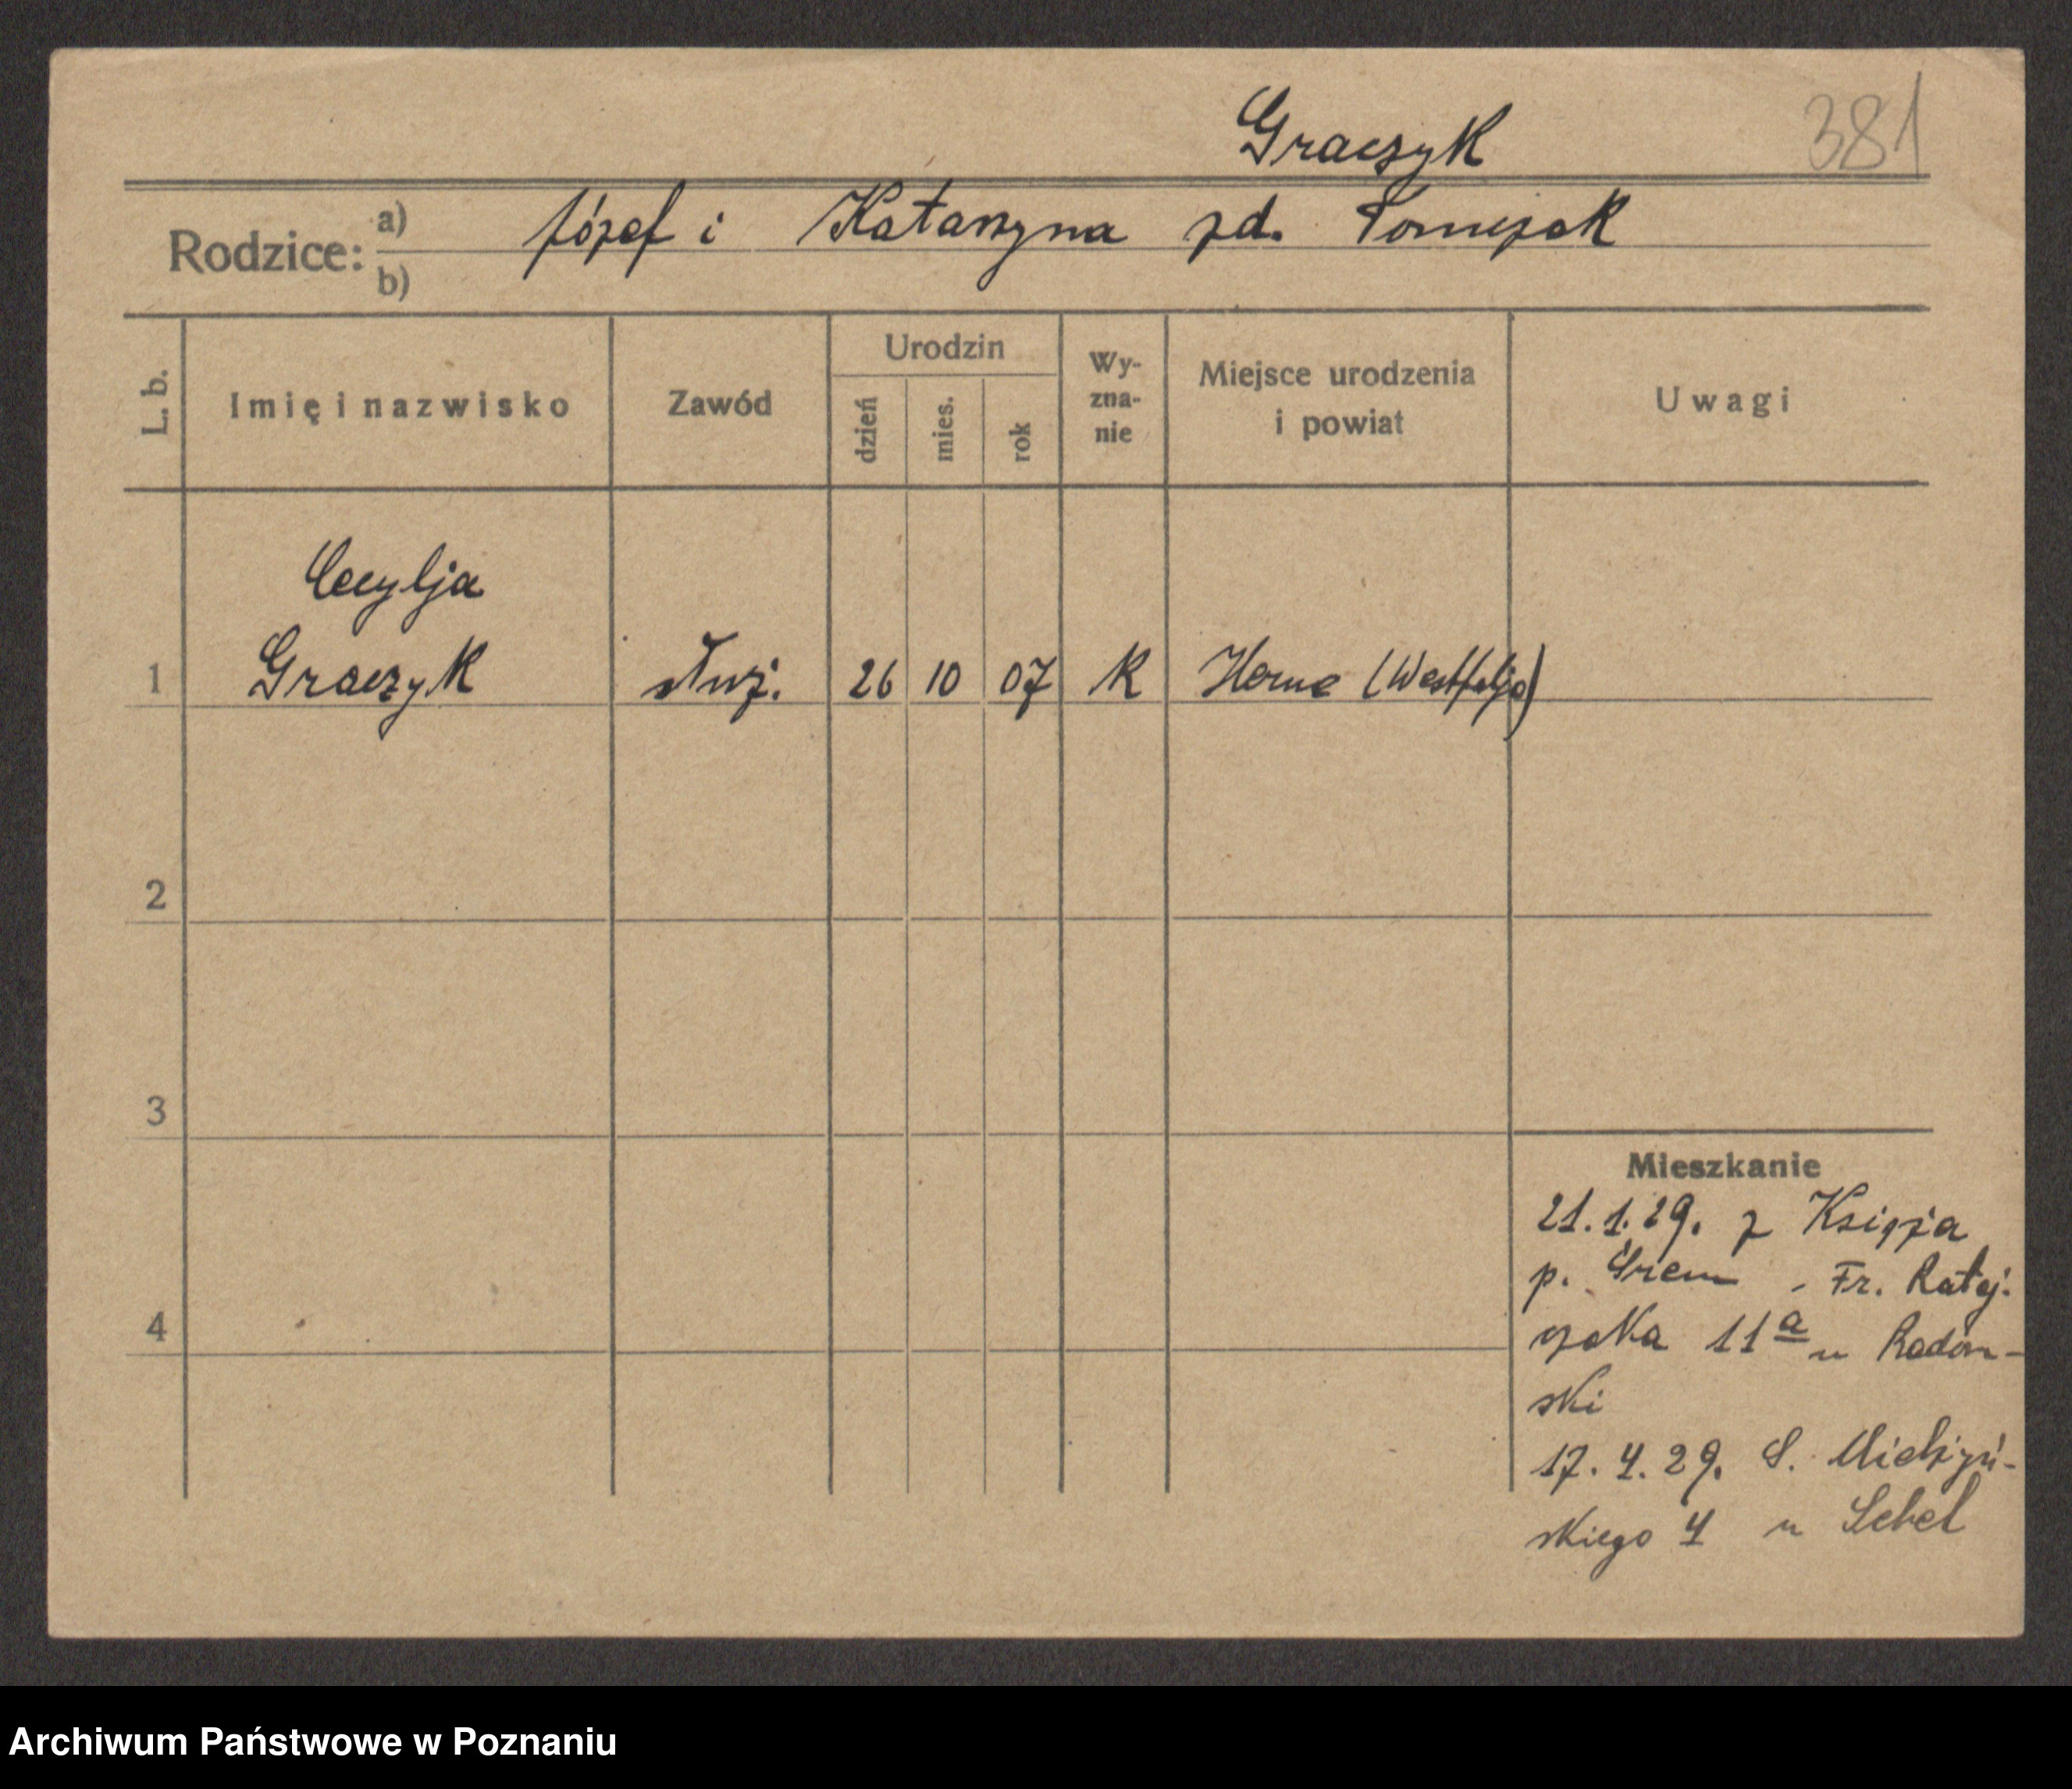 Graczyk 381
Rodzice: a) Józef i Katarzyna zd. Tomczak
b)
L. b. Imię i nazwisko Zawód Urodzin dzień mies. rok Wy-zna-nie Miejsce urodzenia i powiat Uwagi
Cecylja
1 Graczyk służ. 26 10 07 K Herne (Westfalja)
2
3
4
Mieszkanie
21.1.29. z Książa
p. Śrem - Fr. Rataj-
czaka 11a u Radom-
ski
17.4.29. S. Mielżyń-
skiego 4 u Scheel
Archiwum Państwowe w Poznaniu